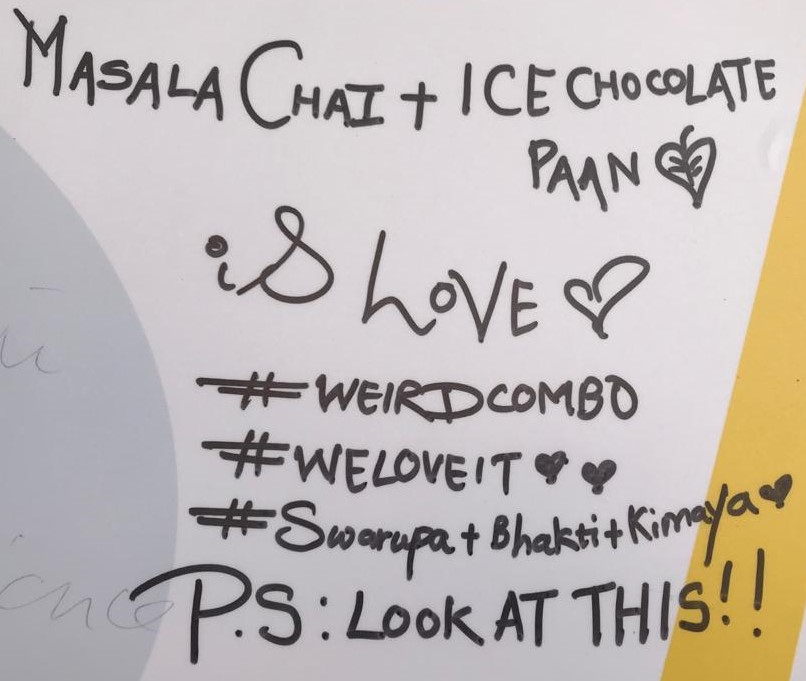 MASALA CHAI + ICE CHOCOLATE
PAAN
is LOVE
#WEIRDCOMBO
#WELOVEIT
#Swarupa + Bhakti + Kimaya
P.S: LOOK AT THIS!!